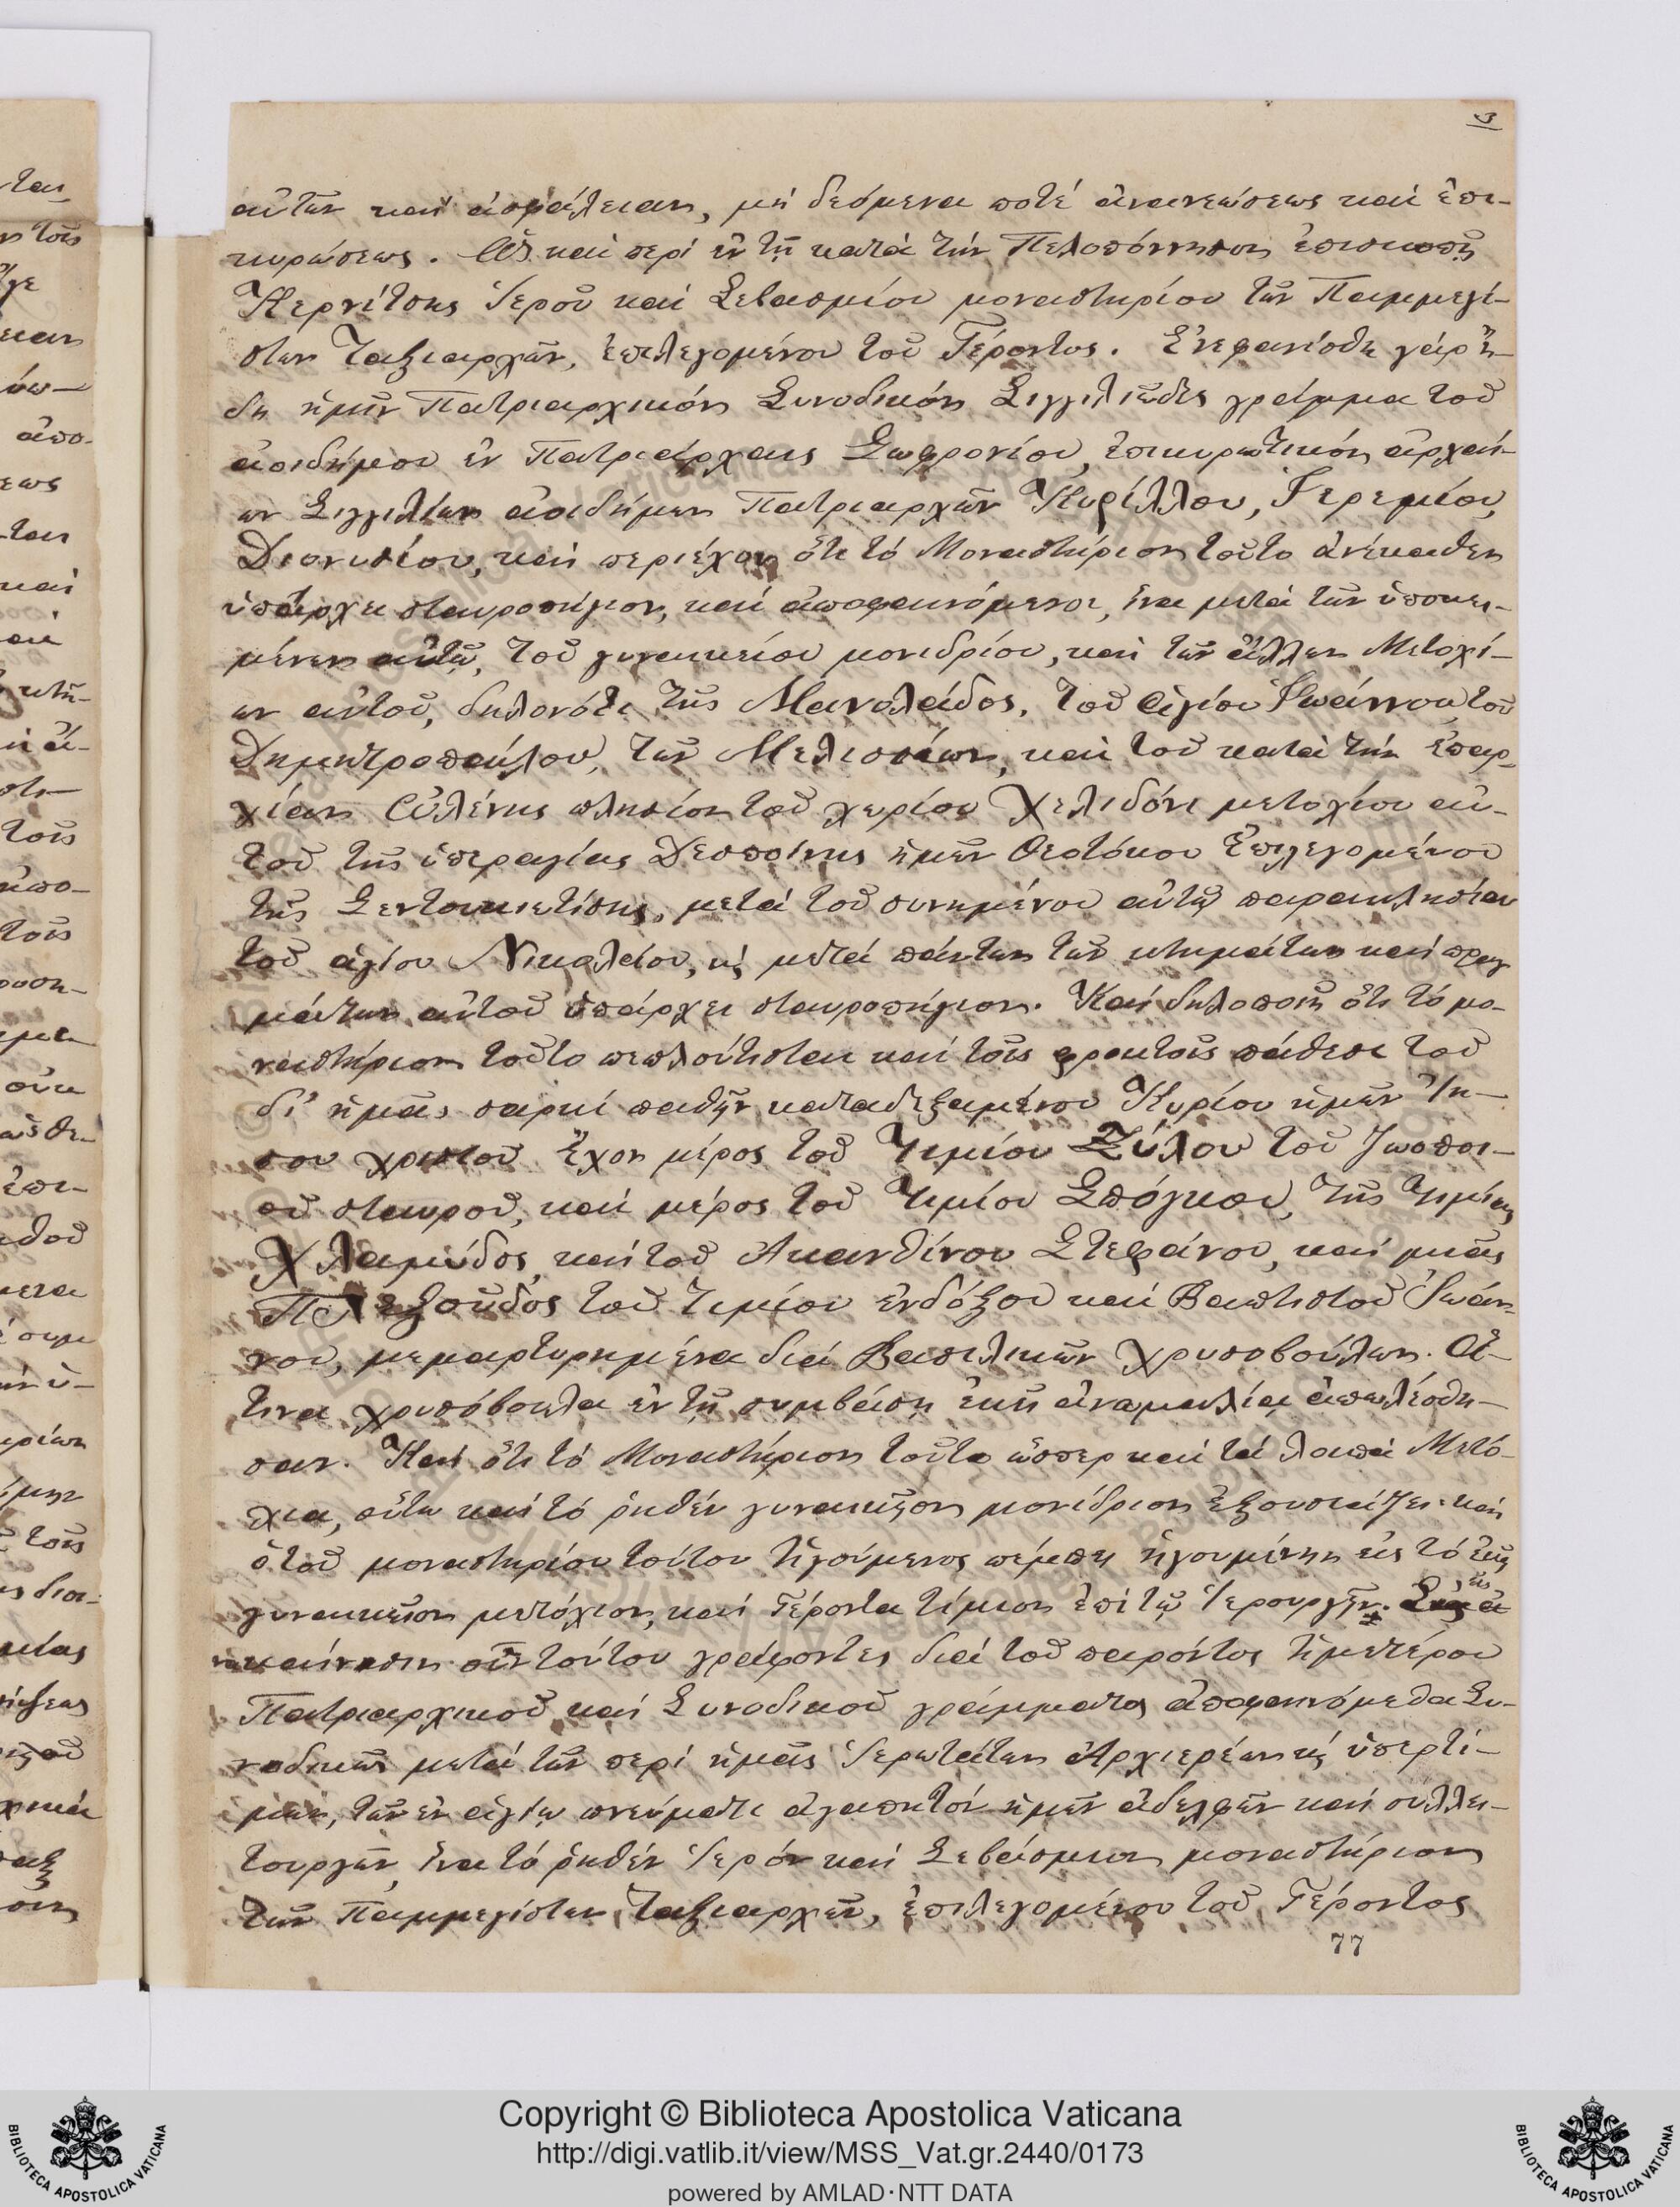 3
αὐτῶν καὶ ἀσφάλειαν, μὴ δεόμενα ποτὲ ἀνανεώσεως καὶ ἐπι-
κυρώσεως. Ὡς καὶ περὶ ἐν τῇ κατὰ τὴν Πελοπόννησον ἐπισκοπῇ
Κερνίτσης Ἱεροῦ καὶ Σεβασμίου μοναστηρίου τῶν Παμμεγί-
στων Ταξιαρχῶν, ἐπιλεγομένου τοῦ Γέροντος. Ἐνεφανίσθη γάρ ἤ-
δη ἡμῖν Πατριαρχικὸν Συνοδικὸν Σιγγιλιῶδες γράμμα τοῦ
ἀοιδήμου ἐν Πατριάρχαις Σωφρονίου, ἐπικυρωτικὸν ἀρχαί-
ων Σιγγιλίων ἀοιδήμων Πατριαρχῶν Κυρίλλου, Ἱερεμίου,
Διονυσίου, καὶ περιέχον ὅτι τὸ Μοναστήριον τοῦτο ἀνέκαθεν
ὑπάρχει σταυροπήγιον, καὶ ἀποφαινόμενοι, ἵνα μετὰ τῶν ὑποκει-
μένων αὐτῷ, τοῦ γυναικείου μονιδρίου, καὶ τῶν ἄλλων Μετοχί-
ων αὐτοῦ, δηλονότι τῆς Μανολάδος, τοῦ Ἁγίου Ἰωάννου τοῦ
Δημητροπούλου, τῶν Μελισσίων, καὶ τοῦ κατὰ τὴν ἐπαρ-
χίαν Ὠλένης πλησίον τοῦ χωρίου Χελιδόνι μετοχίου αὐ-
τοῦ τῆς ὑπεραγίας Δεσποίνης ἡμῶν Θεοτόκου Ἐπιλεγομένου
τῆς μετὰ τοῦ συνημένου αὐτῷ παρακλησίου
τοῦ ἁγίου Νικολάου, κ̀ μετὰ πάντων τῶν κτημάτων καὶ πραγ
μάτων αὐτοῦ ὑπάρχει σταυροπήγιον. Καὶ δηλοποιῇ ὅτι τὸ μο-
ναστήριον τοῦτο πεπλούτισται καὶ τοῖς φρικτοῖς πάθεσι τοῦ
δι' ἡμᾶς σαρκὶ παθῆν καταδεξαμένου Κυρίου ἡμῶν Ἰη-
σου χριστοῦ. Ἔχον μέρος τοῦ Τιμίου Ξύλου τοῦ ζωοποι-
οῦ σταυροῦ, καὶ μέρος τοῦ Τιμίου Σπόγκου, τῆς Τιμίας
Χλαμύδος, καὶ τοῦ Ἀκανθίνου Στεφάνου, καὶ μιᾶς
τοῦ τιμίου ἐνδόξου καὶ Βαπτιστοῦ Ἰωάν-
νου, μεμαρτυρημένα διὰ Βασιλικῶν χρυσοβούλων. Ἅ-
τινα χρυσόβουλα ἐν τῇ συμβάσῃ ἐκῇ ἀνωμαλίᾳ ἀπωλέσθη-
σαν. Καὶ ὅτι τὸ Μοναστήριον τοῦτο ὥσπερ καὶ τὰ λοιπὰ Μετό-
χια, οὕτω καὶ τὸ ῥηθὲν γυναικῇον μονίδριον ἐξουσιάζει· καὶ
ὁ τοῦ μοναστηρίου τούτου ἡγούμενος πέμπῃ ἡγουμένην εἰς τὸ
γυναικεῖον μετόχιον, καὶ Γέροντα τίμιον ἐπὶ τῷ ἱερουργῆν.
οὖν τούτου γράφοντες διὰ τοῦ παρόντος ἡμετέρου
Πατριαρχικοῦ καὶ Συνοδικοῦ γράμματος ἀποφαινόμεθα Συ-
νοδικῶς μετὰ τῶν περὶ ἡμᾶς Ἱερωτάτων Ἀρχιερέων κ̀ ὑπερτί-
μων, τῶν ἐν ἁγίῳ πνεύματι ἀγαπητῶν ἡμῶν ἀδελφῶν καὶ συλλει-
τουργῶν, ἵνα τὸ ῥηθὲν Ἱερὸν καὶ Σεβάσμιον μοναστήριον
τῶν Παμμεγίστων Ταξιαρχῶν, ἐπιλεγομένου τοῦ Γέροντος
77
Copyright © Biblioteca Apostolica Vaticana
http://digi.vatlib.it/view/MSS_Vat.gr.2440/0173
powered by AMLAD·NTT DATA
BIBLIOTECA APOSTOLICA VATICANA
BIBLIOTECA APOSTOLICA VATICANA